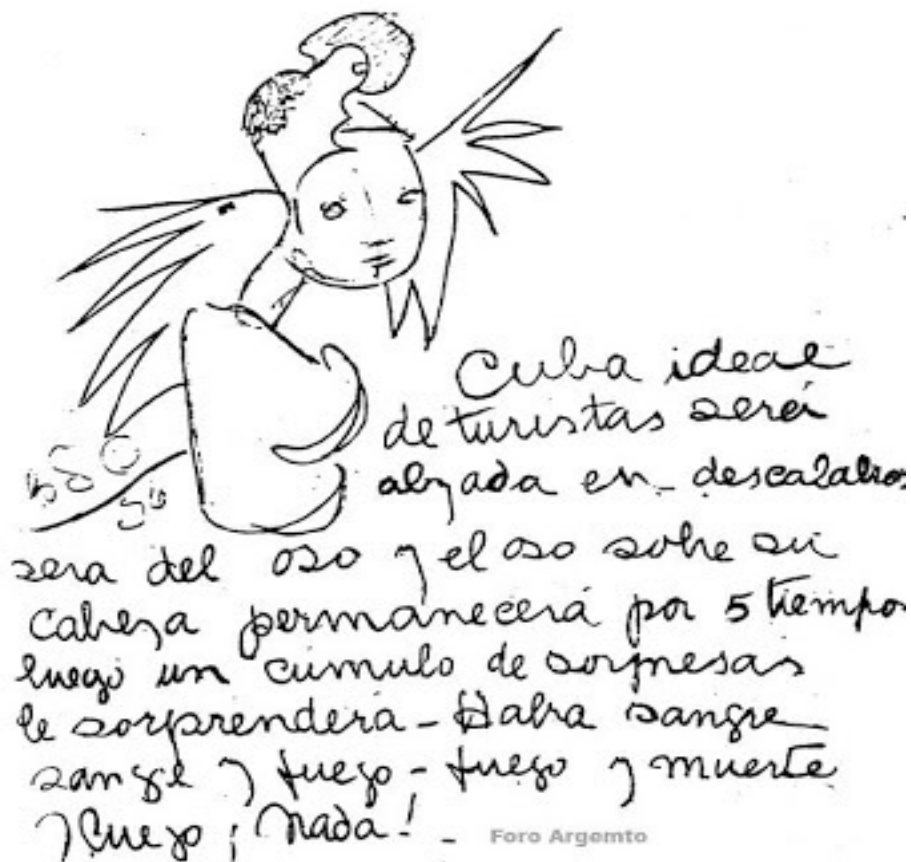 BSC
Cuba ideal
de turistas será
alzada en - descalabros
sera del oso y el oso sobre su
cabeza permanecerá por 5 tiempos
luego un cúmulo de sorpresas
le sorprenderá - Habra sangre
sangre y fuego - fuego y muerte
y luego ¡ Nada! -
Foro Argemto